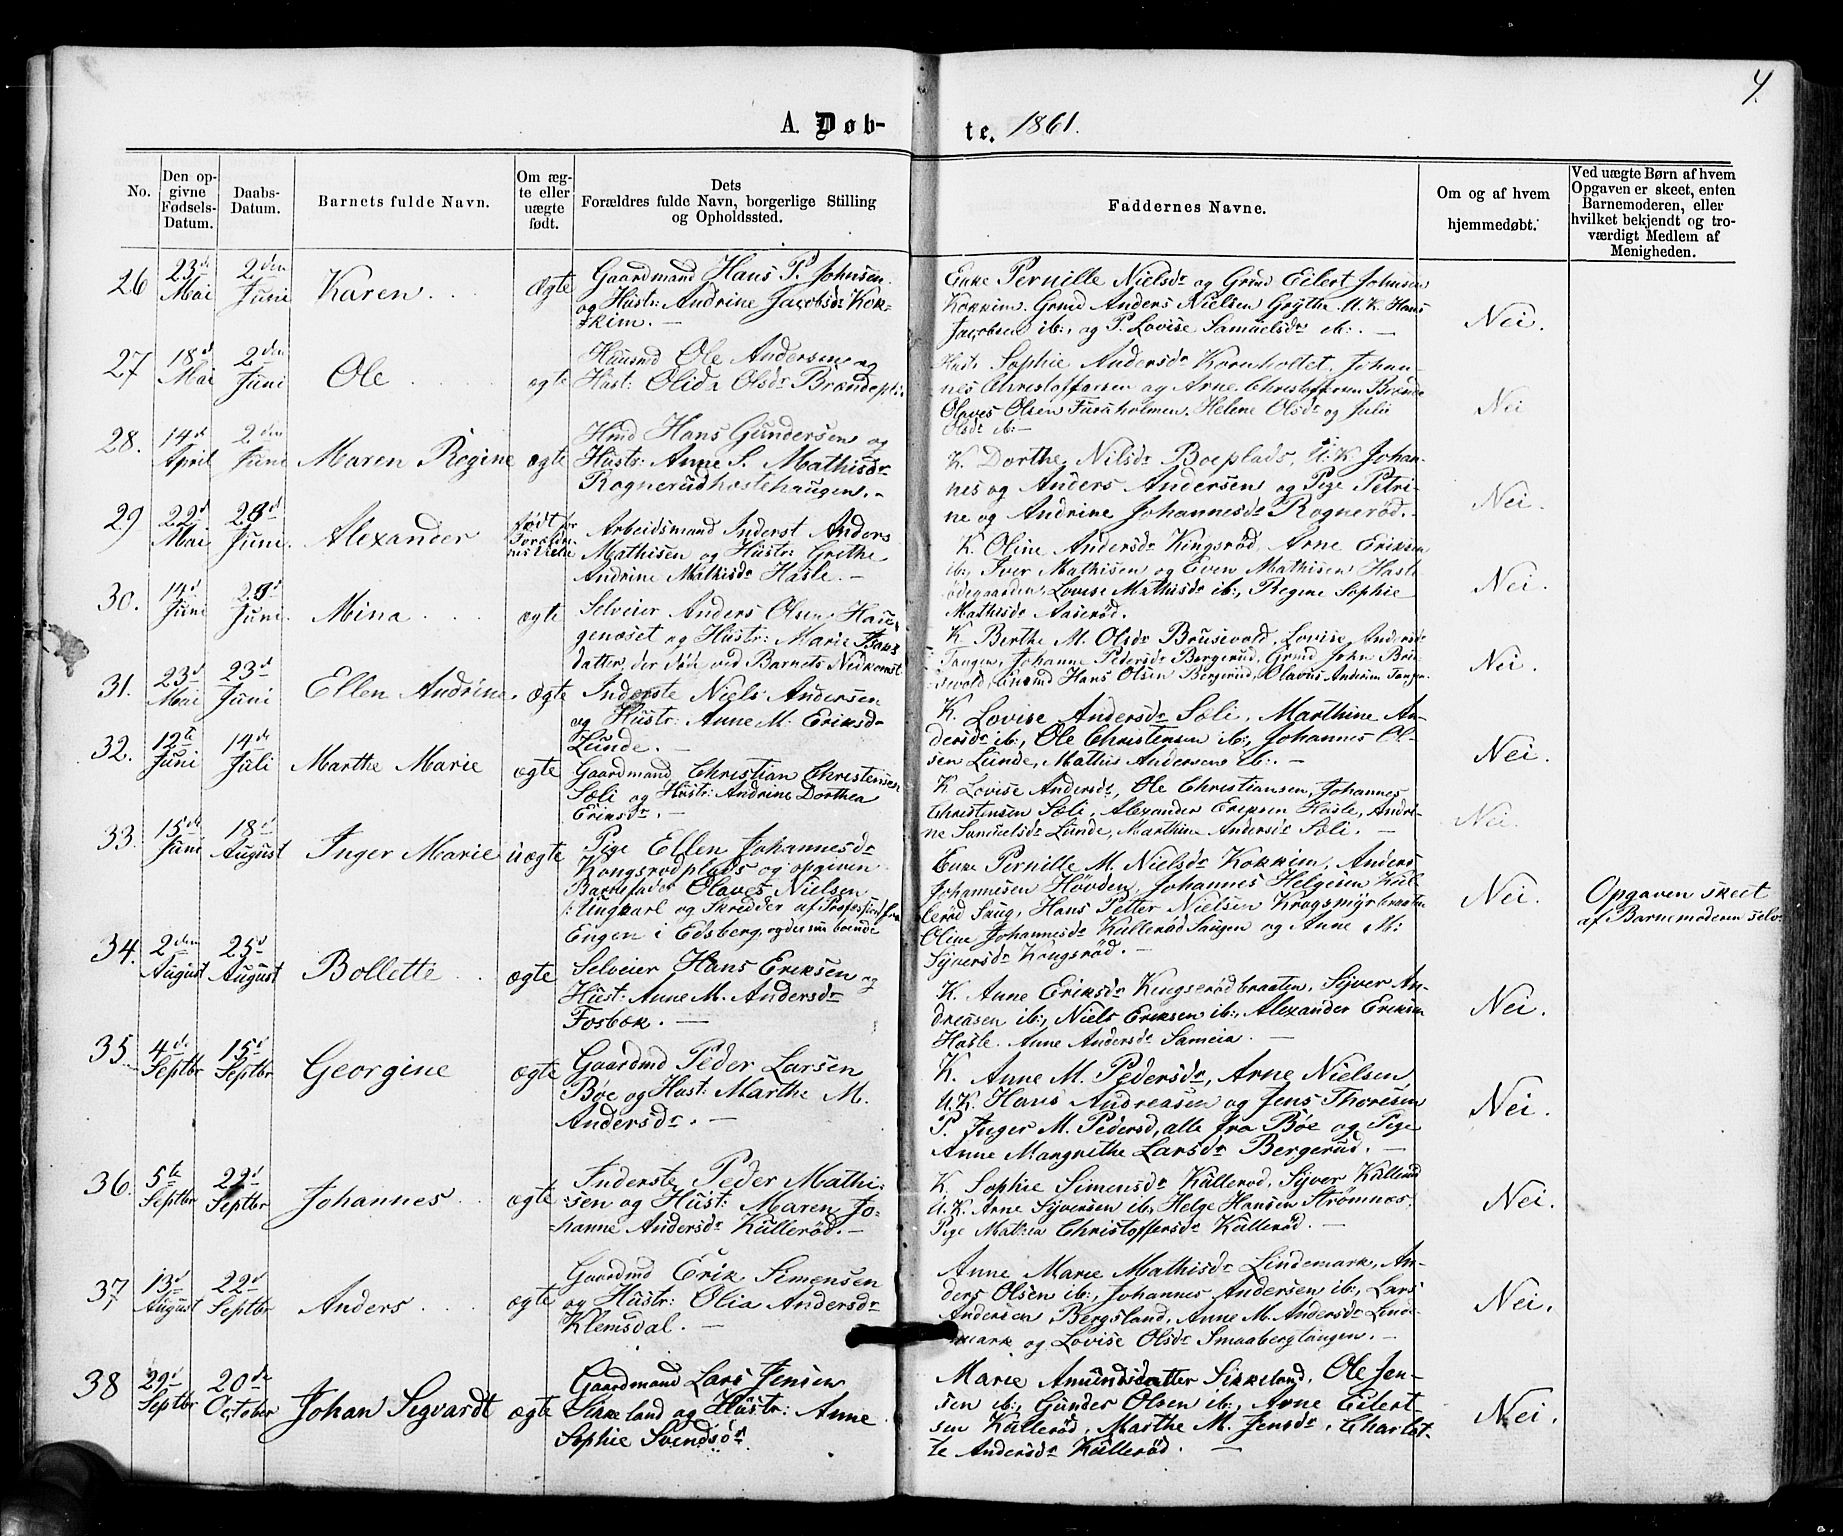 4.
A. Døb-
te. 1861.
No.
Den op-
givne
Fødsels-
Datum.
Daabs-
Datum.
Barnets fulde Navn.
Om æg-
te eller
uægte
født.
Dets
Forældres fulde Navn, borgerlige Stilling
og Opholdssted.
Faddernes Navne.
Om og af hvem
hjemmedøbt.
Ved uægte Børn af hvem
Opgaven er skeet, enten
Barnemoderen, eller
hvilket bekjendt og tro-
værdigt Medlem af
Menigheden.
26
23d
Mai
2den
Juni
Karen
ægte
Gaardmand Hans P. Johnsen
og Hustr: Andrine Jacobsdr Kok-
kim. —
Enke Pernille Nielsdr og Grmd Eilert Johnsen
Kokkim, Grmd Anders Nielsen Grytte U. K. Hans
Jacobsen ib:, og P. Lovise Samuelsdr ib:. —
Nei.
27
18d
Mai
2den
Juni
Ole
ægte
Huusmd Ole Andersen og
Hust: Olid: Olsdr Brændepl:
Sophie Andersdr Kornholtet, Johan-
nes Christoffersen og Arne Christoffersen
Olaves Olsen Furuholmen, Helene Olsdr og Julie
Olsdr ib:—
Nei
28.
14d
April
2den
Juni
Maren Rogine
ægte
Hmd Hans Gundersen og
Hustr: Anne S. Mathisdr
Rognerudhostehaugen. —
K. Dorthe Nilsdr Boeplads, U. K. Johan-
nes og Anders Andersen og Pige Petri-
ne og Andrine Johannesdr Rognerød. —
Nei.
29
22d
Mai
Juni.
Alexander
født før
Arbeidsmand Inderst Anders
Mathisen og Hustr: Grethe
Andrine Mathisdr Hasle. —
K. Oline Andersdr Kingsrød, Arne Eriksen
ib:, Iver Mathisen og Even Mathisen Hasle
ødegaarden, Lovise Mathisdr ib:, Regine Sophie
Mathisdr Aaserød.
Nei.
30.
14d
Juni
Juni.
Mina
ægte
Selveier Anders Olsen Hau-
genæset og Hustr: Marie Isaks
datter, der døde ved Barnets Nedkomst
K. Berthe M. Olsdr Brusevold, Lovise Andersdr
Tangen, Johanne Pedersdr Bergerud, Grmd John Bru-
sevold, Hans Olsen Bergerud, Olavus Andersen Tangen
Nei.
31.
23d
Mai
23d
Juni
Ellen Andrine.
ægte
Inderste Niels Andersen
og Hustr: Anne M. Eriksdr
Lunde. —
K. Lovise Andersdr Sæli, Marthine An-
dersdr ib:, Ole Christensen ib:, Johannes Ol-
sen Lunde, Mathis Andersen ib:. —
Nei.
32.
12te
Juni
14de
Juli
Marthe Marie
ægte
Gaardmand Christian Christensen
Sæli og Hustr: Andrine Dorthea
Eriksdr. —
K. Lovise Andersdr, Ole Christiansen, Johannes
Christensen Sæli, Alexander Eriksen Hasle, Andri-
ne Samuelsdr Lunde, Marthine Andersdr Sæli. —
Nei.
33.
15de
Juni
18d
August
Inger Marie
uægte
Pige Ellen Johannesdr
Kongsrødplads og opgiven
Barnefader Olaves Nielsen
/: Ungkarl og Skredder af Profession fra
Engen i Edsberg, og der nu boende
Enke Pernille M. Nielsdr Kokkim, Anders
Johannesen Høvden, Johannes Helgesen Kul-
lerød Saug, Hans Petter Nielsen Kragsmyrbraaten
Oline Johannesdr Kullerød Saugen og Anne M.
Syversdr Kongsrød.
Nei.
Opgaven skeet
af Barnemoderen selv.
34.
2den
August
25d
August
Bollette
ægte
Selveier Hans Eriksen og
Hust: Anne M. Andersdr
Fosbøk. —
K. Anne Eriksdr Kingserødbraaten, Syver An-
dreasen ib:, Niels Eriksen ib:, Alexander Eriksen
Hasle. Anne Andersdr Sameia. —
Nei.
35.
4de
Septbr
15d
Septbr
Georgine
ægte
Gaardmd Peder Larsen
Bøe og Hust: Marthe M.
Andersdr. —
K. Anne M. Pedersdr, Arne Nielsen
U. K. Hans Andreasen og Jens Thoresen
P. Inger M. Pedersd, alle fra Bøe og Pige
Anne Margrethe Larsdr Bergerud. —
Nei.
36.
5te
Septbr
22d
Septbr
Johannes
ægte
Inderste Peder Mathi-
sen og Hust: Maren Jo-
hanne Andersdr Kullerød. —
K. Sophie Simensdr Kullerød, Syver Kullerud
U. K. Arne Syversen ib:, Helge Hansen Strømnæs,
Pige Mathea Christoffersdr Kullerød. —
Nei.
37,
13d
August
22d
Septbr
Anders
ægte
Gaardmd Erik Simensen
og Hustr: Olia Andersdr
Klemsdal. —
Anne Marie Mathisdr Lindemark, An-
ders Olsen ib:, Johannes Andersen ib:, Lars
Andersen Bergsland, Anne M. Andersdr Linde-
mark og Lovise Olsdr Smaabergtangen. —
Nei.
38
29d
Septbr
20de
October
Johan Segvardt
ægte
Gaardmand Lars Jensen
Sikkeland og Hustr: Anne
Sophie Svendsdr
Marie Amundsdatter Sikkeland, Ole Jen-
sen ib:, Gunder Olsen ib:, Arne Eilert-
sen Kullerød, Marthe M. Jensdr, Charlot-
te Andersdr Kullerød. —
Nei.